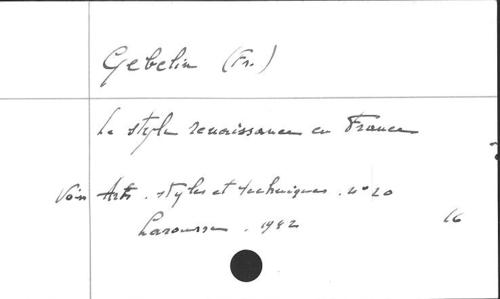 Gebelin (Fr.)
Le style renaissance en France
Voir Arts. styles et techniques. n° 20
Larousse. 1942
16